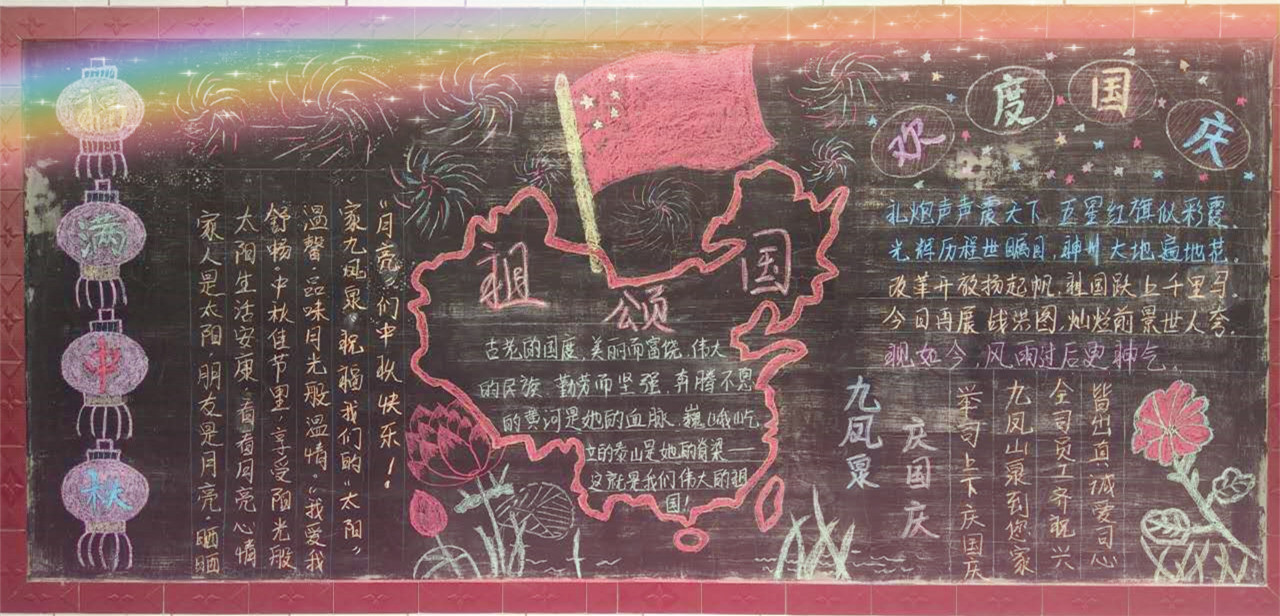 福满中秋
家人是太阳·朋友是月亮·晒晒
太阳生活安康·看看月亮心情
舒畅·中秋佳节里·享受阳光般
温馨·品味月光般温情。我爱我
家九凤泉·祝福我们的“太阳”
“月亮”们中秋快乐！
祖国颂
古老的国度，美丽而富饶，伟大
的民族，勤劳而坚强，奔腾不息
的黄河是她的血脉，巍峨屹
立的泰山是她的脊梁——
这就是我们伟大的祖
国！
欢度国庆
礼炮声声震天下 五星红旗似彩霞.
光辉历程世瞩目,神州大地遍地花.
改革开放扬起帆,祖国跃上千里马.
今日再展战洪图,灿烂前景世人夸.
观如今,风雨过后更神气.
九凤泉
庆国庆
举司上下庆国庆
九凤山泉到您家
全司员工齐祝兴
皆出真诚爱司心